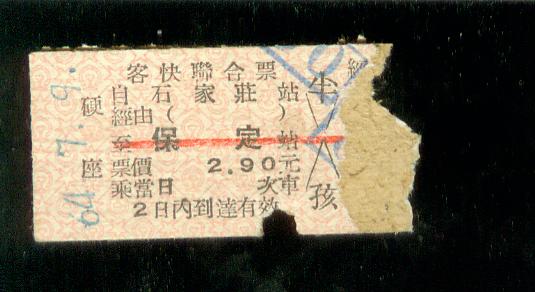 64.7.9.
客快聯合票
硬座
自石家莊站
經由( )
至保定站
票價2.90元
乘當日 次車
2日內到達有效
半
孩